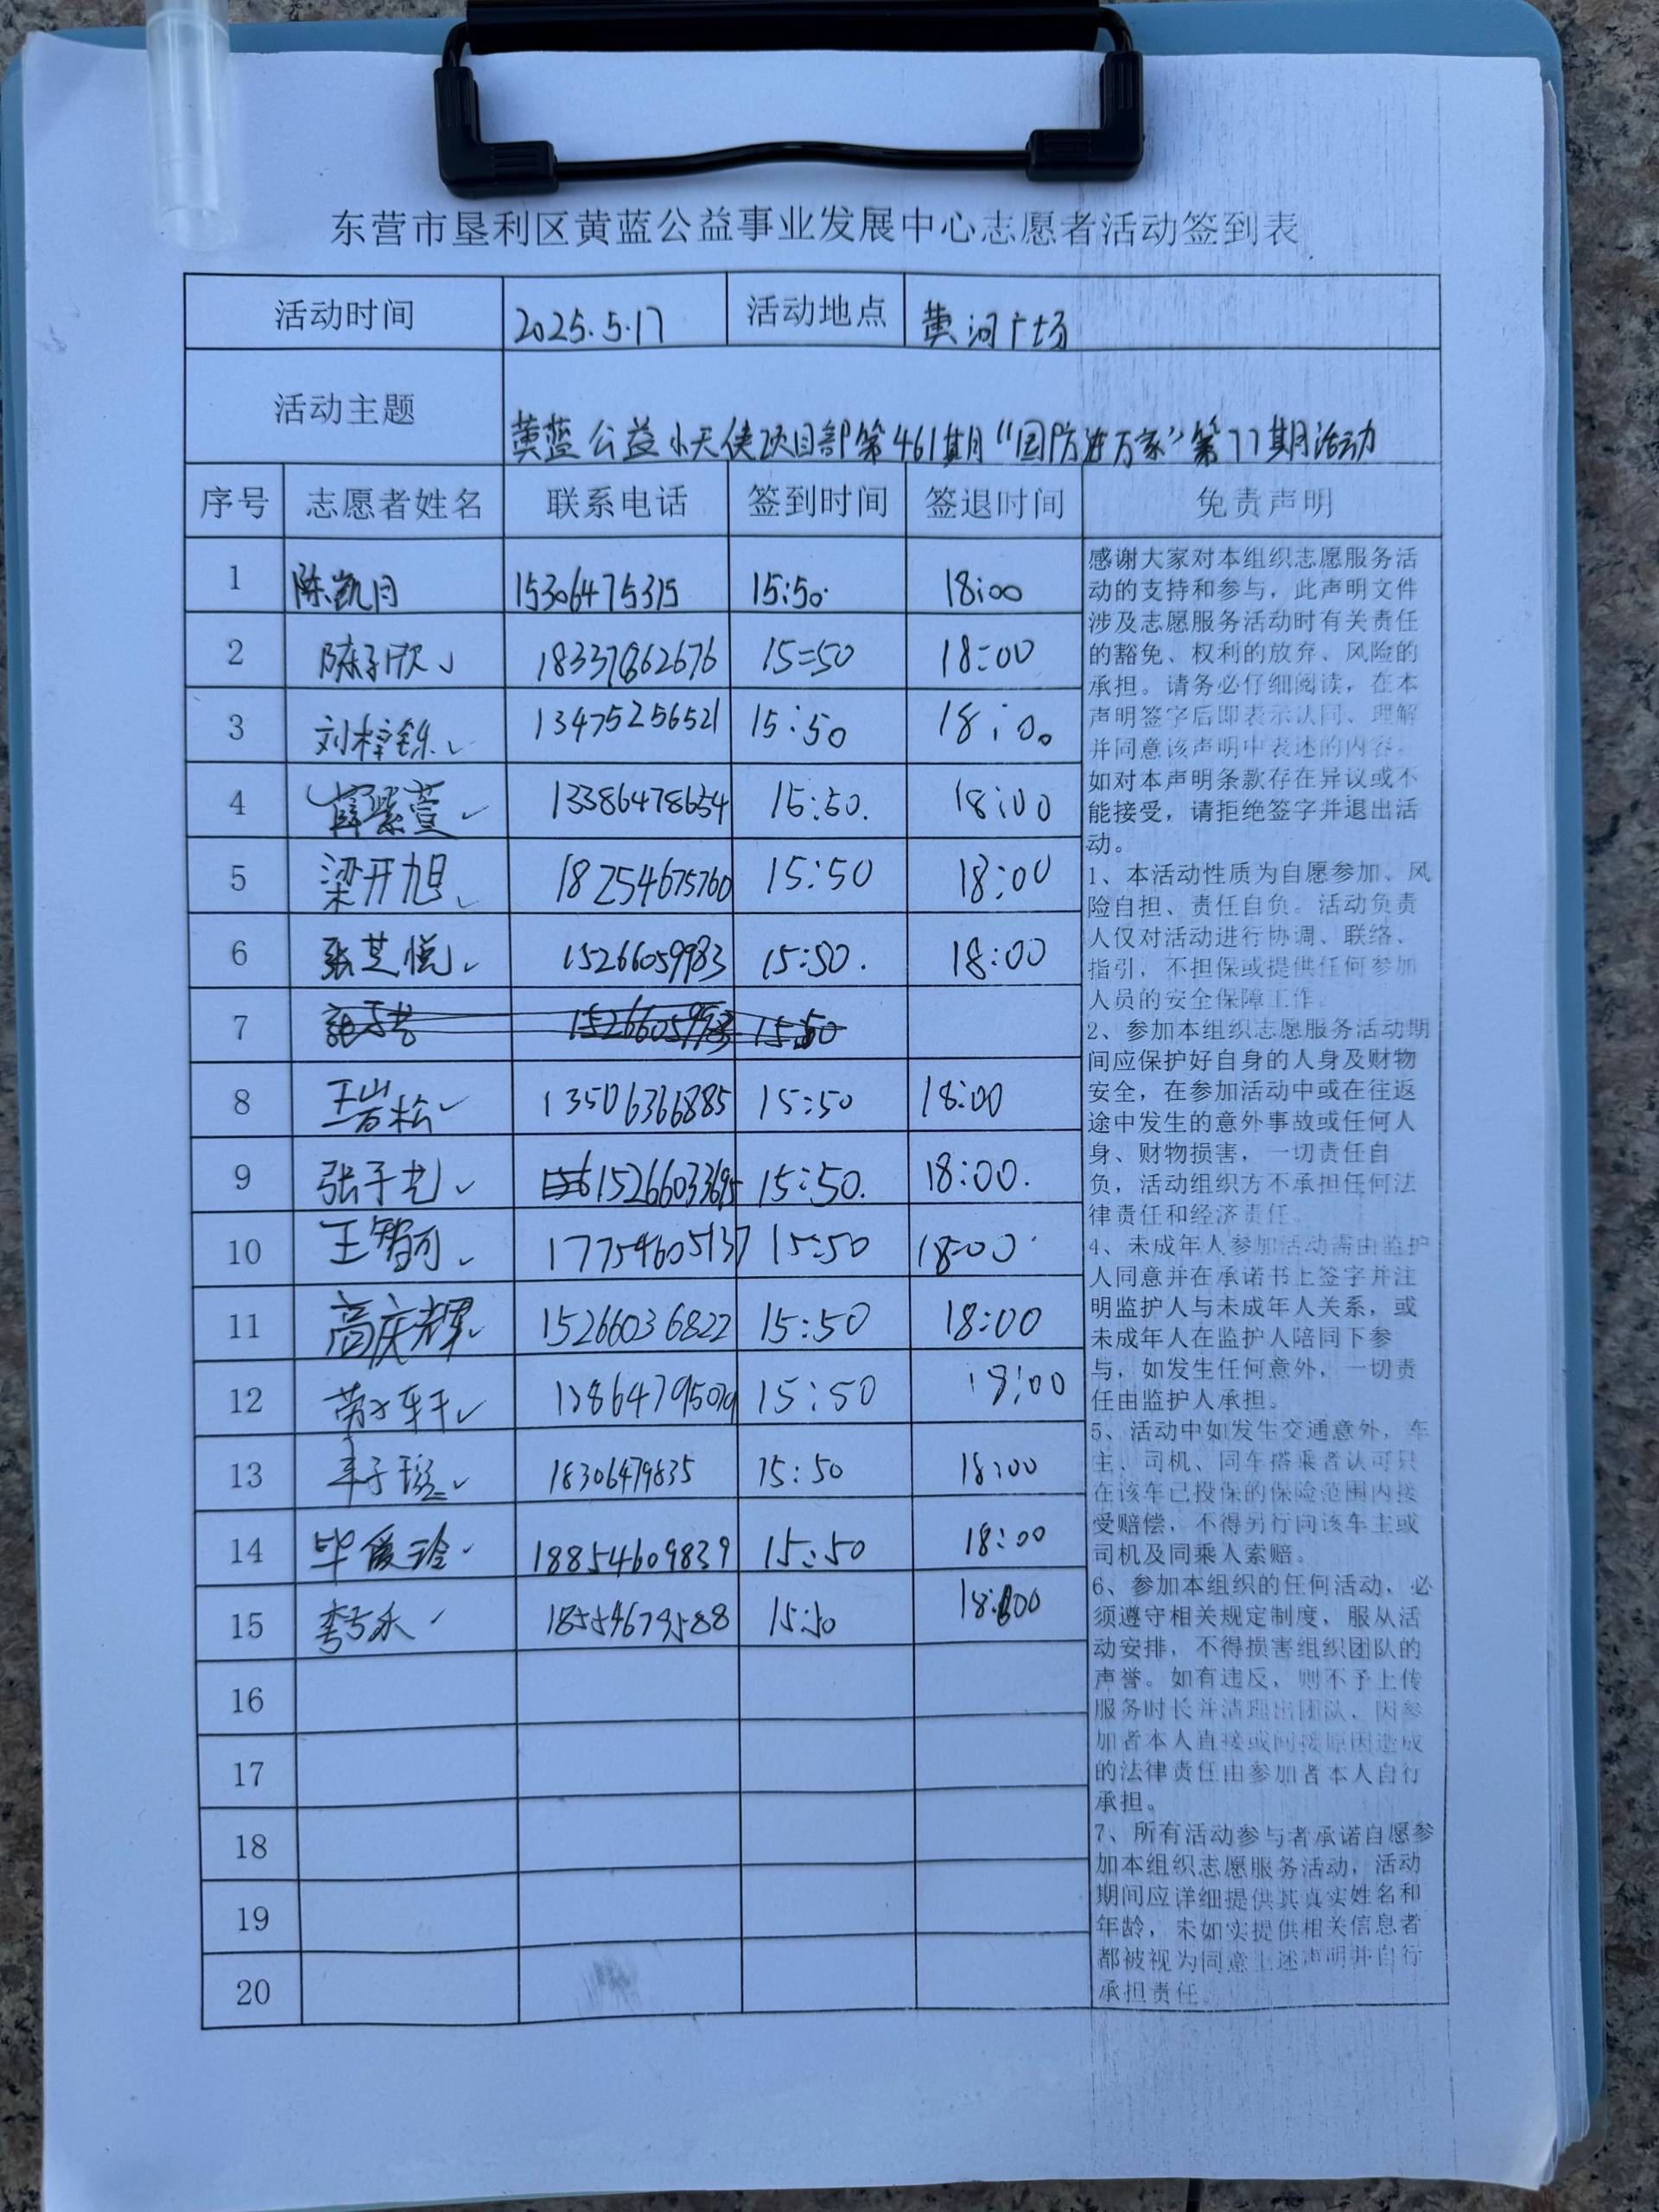 东营市垦利区黄蓝公益事业发展中心志愿者活动签到表
活动时间 2025.5.17 活动地点 黄河广场
活动主题 黄蓝公益小天使项目部第461期“国防进万家”第77期活动
序号 志愿者姓名 联系电话 签到时间 签退时间 免责声明
1 陈凯月 15306475315 15:50 18:00
2 陈子欣 15:50 18:00
3 刘梓铄 13475256521 15:50 18:00
4 薛紫萱 13386478654 15:50. 18:00
5 梁开旭 18254675760 15:50 18:00
6 张芝悦 15266059983 15:50. 18:00
7 15:50
8 王岩松 13506366885 15:50 18:00
9 张子艺 15266033695 15:50. 18:00.
10 王智可 17754605137 15:50 18:00
11 高庆辉 15266036822 15:50 18:00
12 15:50 18:00
13 18306479835 15:50 18:00
14 毕爱玲 18854609839 15:50 18:00
15 18554679588 15:50 18:00
16
17
18
19
20
感谢大家对本组织志愿服务活
动的支持和参与，此声明文件
涉及志愿服务活动时有关责任
的豁免、权利的放弃、风险的
承担。请务必仔细阅读，在本
声明签字后即表示认同、理解
并同意该声明中表述的内容。
如对本声明条款存在异议或不
能接受，请拒绝签字并退出活
动。
1、本活动性质为自愿参加、风
险自担、责任自负。活动负责
人仅对活动进行协调、联络、
指引，不担保或提供任何参加
人员的安全保障工作。
2、参加本组织志愿服务活动期
间应保护好自身的人身及财物
安全，在参加活动中或在往返
途中发生的意外事故或任何人
身、财物损害，一切责任自
负，活动组织方不承担任何法
律责任和经济责任。
4、未成年人参加活动需由监护
人同意并在承诺书上签字并注
明监护人与未成年人关系，或
未成年人在监护人陪同下参
与，如发生任何意外，一切责
任由监护人承担。
5、活动中如发生交通意外，车
主、司机、同车搭乘者认可只
在该车已投保的保险范围内接
受赔偿，不得另行向该车主或
司机及同乘人索赔。
6、参加本组织的任何活动，必
须遵守相关规定制度，服从活
动安排，不得损害组织团队的
声誉。如有违反，则不予上传
服务时长并清理出团队，因参
加者本人直接或间接原因造成
的法律责任由参加者本人自行
承担。
7、所有活动参与者承诺自愿参
加本组织志愿服务活动，活动
期间应详细提供其真实姓名和
年龄，未如实提供相关信息者
都被视为同意上述声明并自行
承担责任。